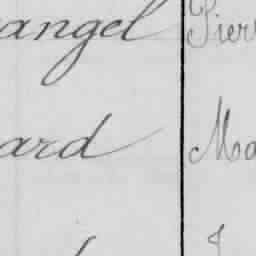 angel Pier
ard Ma